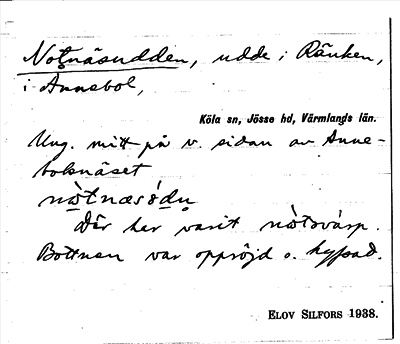 Notnäsudden, udde i Ränken,
i Annebol,
Köla sn, Jösse hd, Värmlands län.
Ung. mitt på v. sidan av Anne-
bolnäset
nòtnæsódn̥
Där har varit nòtsvárp.
Bottnen var oppröjd o. hyfsad.
ELOV SILFORS 1938.